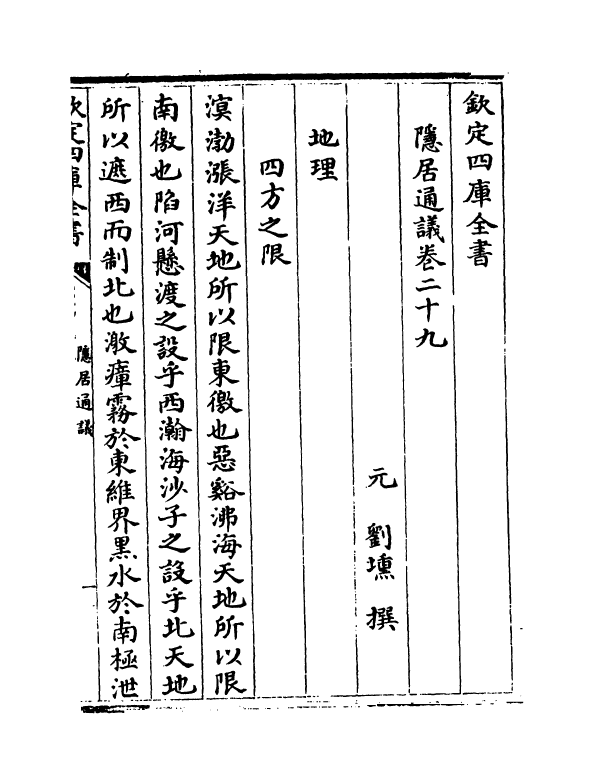 欽定四庫全書
隱居通議卷二十九
元 劉壎 撰
地理
四方之限
溟渤漲洋天地所以限東徼也惡谿沸海天地所以限
南徼也陷河懸渡之設乎西瀚海沙子之設乎北天地
所以遮西而制北也激瘴霧於東維界黒水於南極泄
欽定四庫全書
隱居通議
一